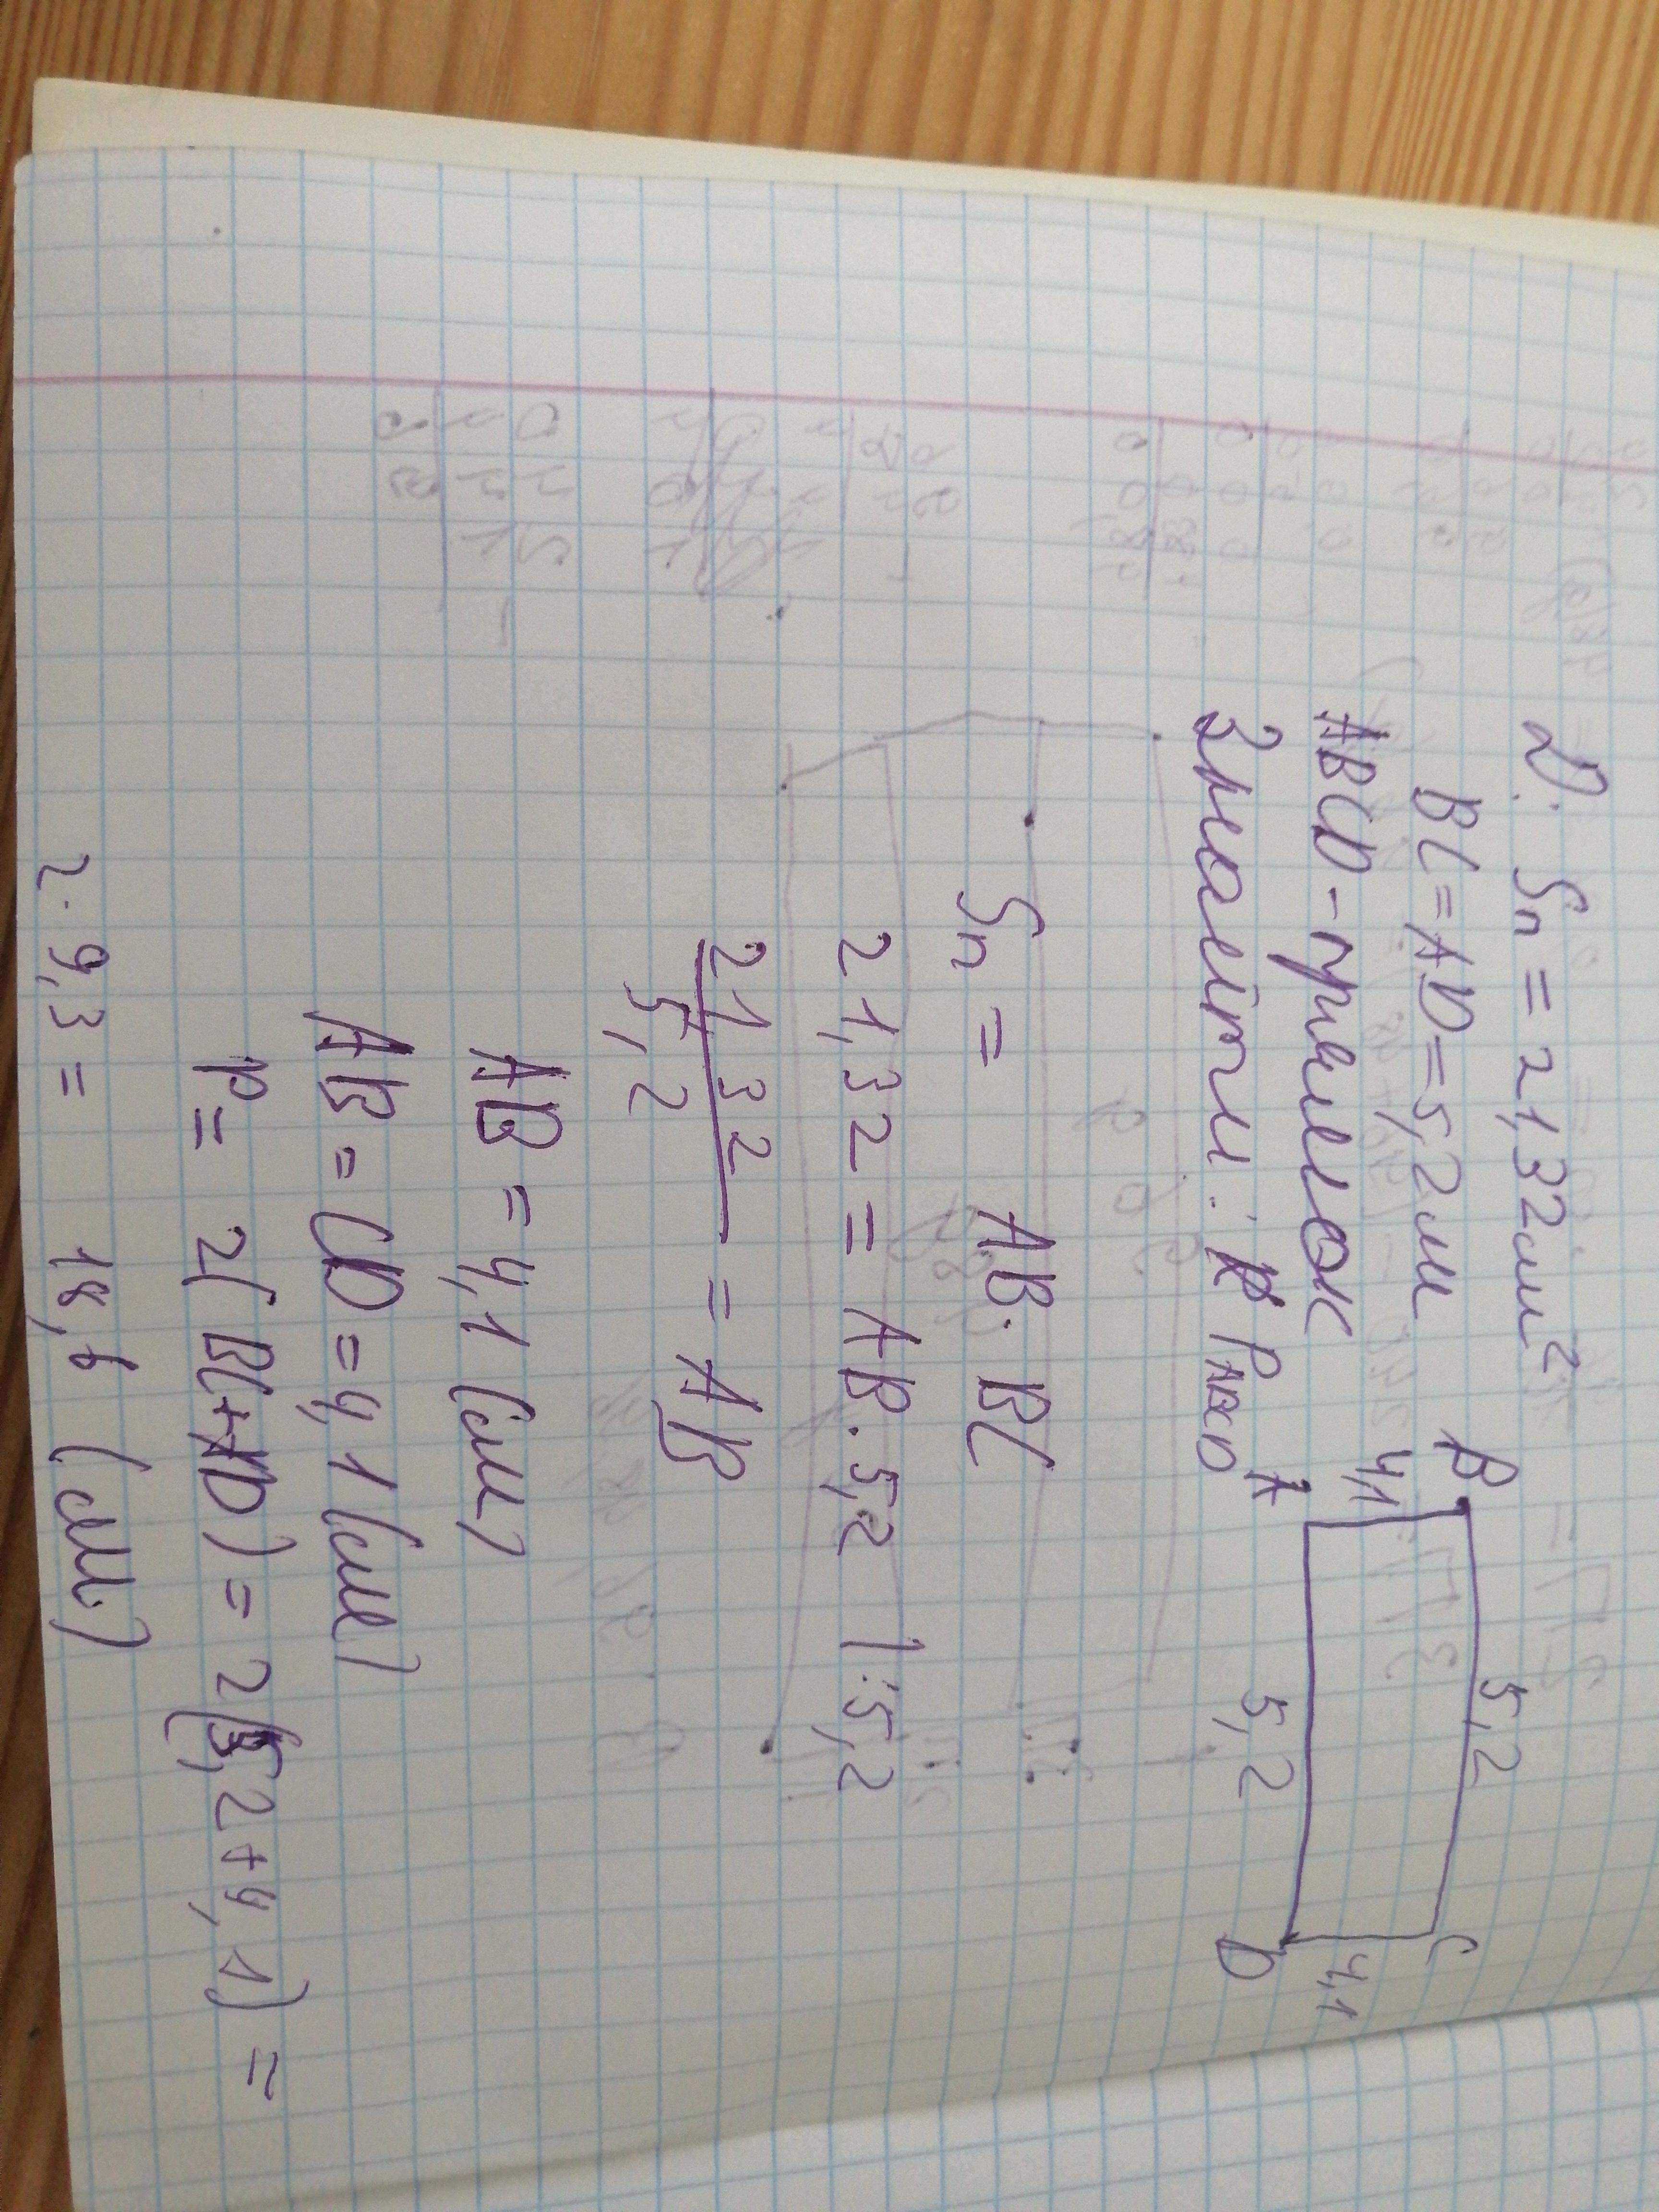 D: Sп = 21,32 см²
BC = AD = 5,2 см
ABCD - прямок
Знайти: P ABCD
B 5,2 C
4,1 4,1
A 5,2 D
Sп = AB · BC
21,32 = AB · 5,2 | : 5,2
21,32 / 5,2 = AB
AB = 4,1 (см)
AB = CD = 4,1 (см)
P = 2(BC + AD) = 2(5,2 + 4,1) =
2 · 9,3 = 18,6 (см)